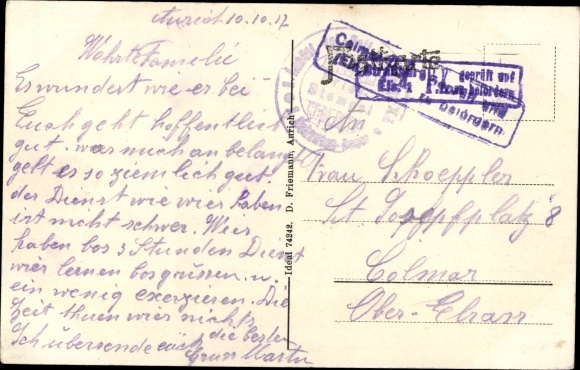 Aurich 10.10.17
Wehrte Familie
Es wundert wie er bei
Euch geht hoffentlich
gut. was mich an belangt
geht es so ziemlich gut.
der Dienst wie wier haben
ist nicht schwer. Wier
haben bos 3 Stunden Dienst
wier lernen bos grüssen. u.
ein wenig exerzieren. Die
Zeit thuen wier nichts
Ich übersende euch die besten
Gruss Martin
Ideal 74242. D. Friemann, Aurich
geprüft und
zu befördern
zu befördern
An
Frau Schoeppler
St Josephsplatz 8
Colmar
Ober-Elsass